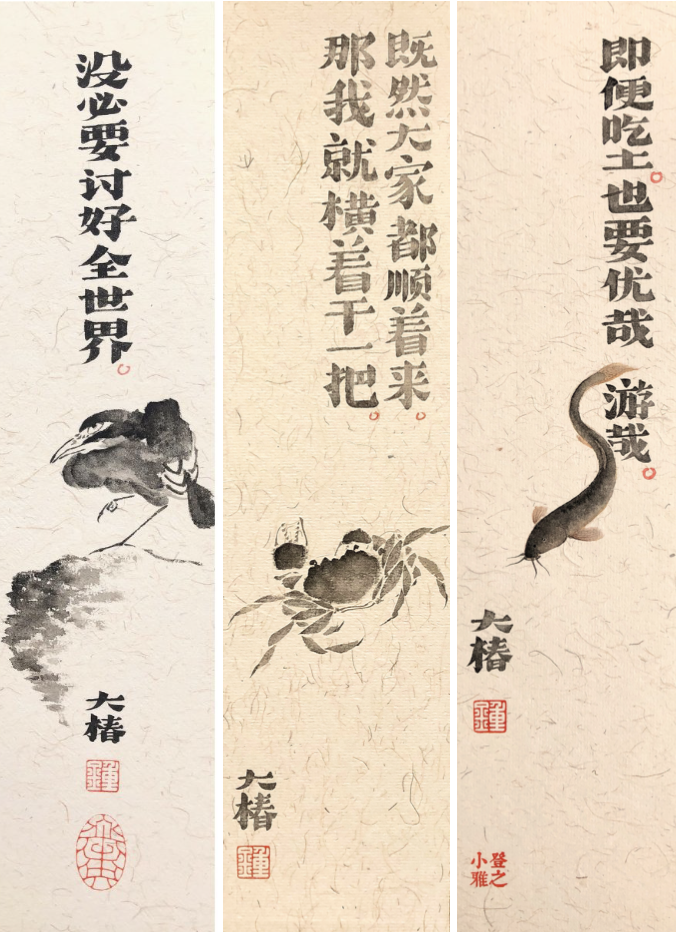 没必要讨好全世界。
大椿
鍾
既然大家都顺着来。
那我就横着干一把。
大椿
鍾
即便吃土。也要优哉游哉。
大椿
鍾
登之
小雅